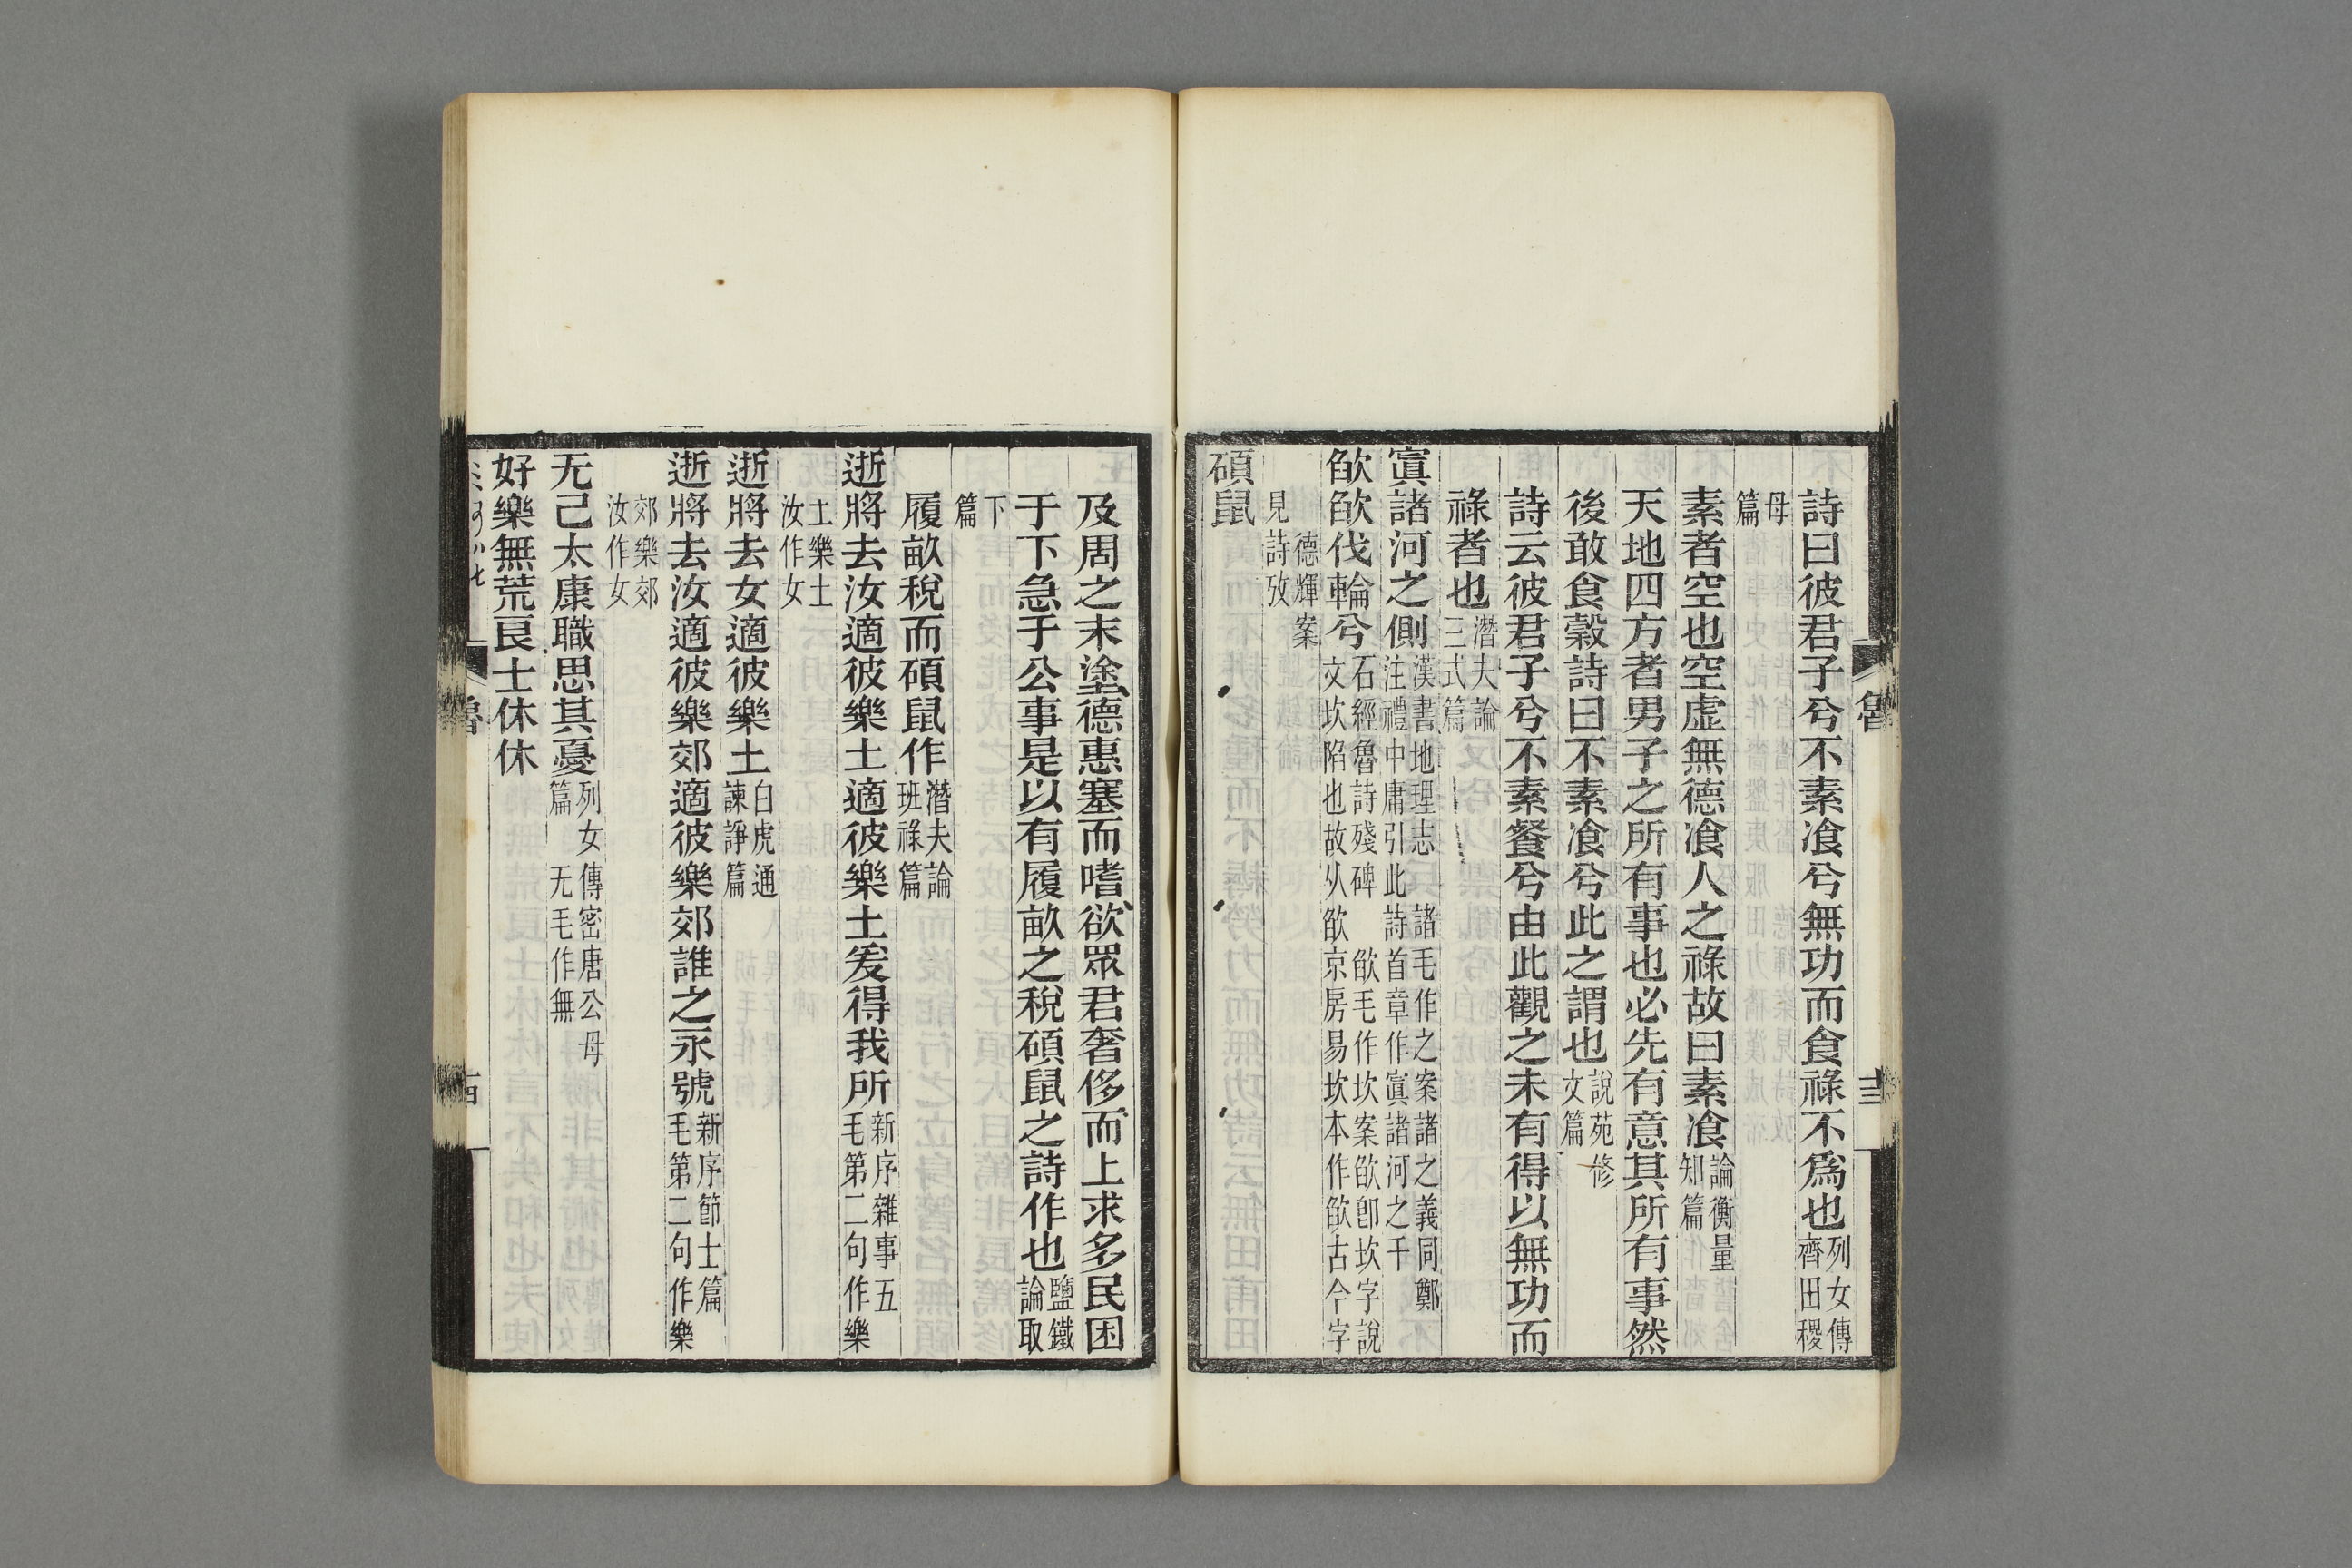 詩曰彼君子兮不素飡兮無功而食祿不爲也列女傳齊田稷
母篇
素者空也空虛無德飡人之祿故曰素飡論衡量知篇
天地四方者男子之所有事也必先有意其所有事然
後敢食穀詩曰不素飡兮此之謂也說苑修文篇
詩云彼君子兮不素餐兮由此觀之未有得以無功而
祿者也潛夫論三式篇
寘諸河之側漢書地理志 諸毛作之案諸之義同鄭注禮中庸引此詩首章作寘諸河之干
欿欿伐輪兮石經魯詩殘碑 欿毛作坎案欿卽坎字說文坎陷也故从欿京房易坎本作欿古今字
德輝案見詩攷
碩鼠
及周之末塗德惠塞而嗜欲眾君奢侈而上求多民困
于下急于公事是以有履畝之稅碩鼠之詩作也鹽鐵論取
下篇
履畝稅而碩鼠作潛夫論班祿篇
逝將去汝適彼樂土適彼樂土爰得我所新序雜事五毛第二句作樂
土樂土汝作女
逝將去女適彼樂土白虎通諫諍篇
逝將去汝適彼樂郊適彼樂郊誰之永號新序節士篇毛第二句作樂
郊樂郊汝作女
无已太康職思其憂列女傳密唐公母篇 无毛作無
好樂無荒良士休休
魯
十三
魯